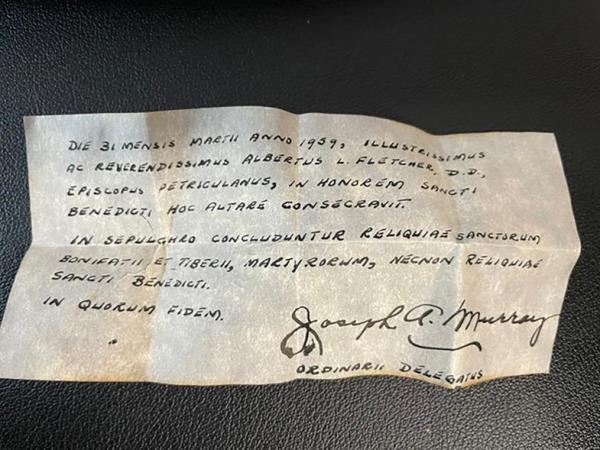 DIE 31 MENSIS MARTII ANNO 1959, ILLUSTRISSIMUS
AC REVERENDISSIMUS ALBERTUS L. FLETCHER, D.D.,
EPISCOPUS PETRICULANUS, IN HONOREM SANCTI
BENEDICTI HOC ALTARE CONSECRAVIT.
IN SEPULGHRO CONCLUDUNTUR RELIQUIAE SANCTORUM
BONIFATII ET TIBERII, MARTYRORUM, NECNON RELIQUIAE
SANCTI BENEDICTI.
IN QUORUM FIDEM.
Joseph A. Murray
ORDINARII DELEGATUS